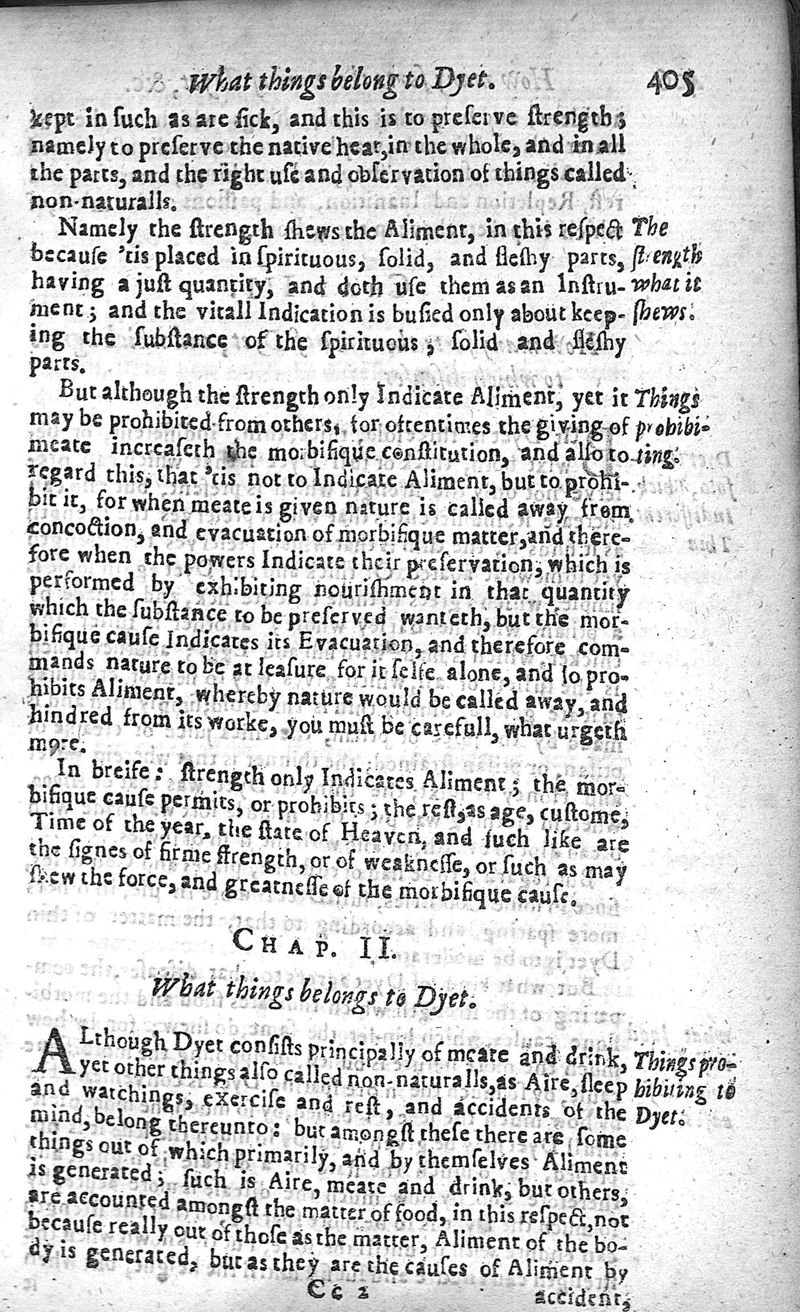 What things belong to Dyet. 405
kept in ſuch as are ſick, and this is to preſerve ſtrength;
namely to preſerve the native heat, in the whole, and in all
the parts, and the right uſe and obſervation of things called
non-naturalls.
Namely the ſtrength ſhews the Aliment, in this reſpect
becauſe 'tis placed in ſpirituous, ſolid, and fleſhy parts,
having a juſt quantity, and doth uſe them as an Inſtru-
ment; and the vitall Indication is buſied only about keep-
ing the ſubſtance of the ſpirituous, ſolid and fleſhy
parts.
The
ſtrength
what it
ſhews.
But although the ſtrength only Indicate Aliment, yet it
may be prohibited from others, for oftentimes the giving of
meate increaſeth the morbifique conſtitution, and alſo to
regard this, that 'tis not to Indicate Aliment, but to prohi-
bit it, for when meate is given nature is called away from
concoction, and evacuation of morbifique matter, and there-
fore when the powers Indicate their preſervation, which is
performed by exhibiting nouriſhment in that quantity
which the ſubſtance to be preſerved wanteth, but the mor-
bifique cauſe Indicates its Evacuation, and therefore com-
mands nature to be at leaſure for it ſelfe alone, and ſo pro-
hibits Aliment, whereby nature would be called away, and
hindred from its worke, you muſt be carefull, what urgeth
more.
Things
prohibi-
ting.
In breife: ſtrength only Indicates Aliment; the mor-
bifique cauſe permits, or prohibits; the reſt, as age, cuſtome,
Time of the year, the ſtate of Heaven, and ſuch like are
the ſignes of firme ſtrength, or of weakneſſe, or ſuch as may
ſhew the force, and greatneſſe of the morbifique cauſe.
CHAP. II.
What things belongs to Dyet.
ALthough Dyet conſiſts principally of meate and drink,
yet other things alſo called non-naturalls, as Aire, ſleep
and watchings, exerciſe and reſt, and accidents of the
mind, belong thereunto: but amongſt theſe there are ſome
things out of which primarily, and by themſelves Aliment
is generated; ſuch is Aire, meate and drink, but others,
are accounted amongſt the matter of food, in this reſpect, not
becauſe really out of thoſe as the matter, Aliment of the bo-
dy is generated, but as they are the cauſes of Aliment by
Things pro-
hibiting to
Dyet.
Cc 2 accident,